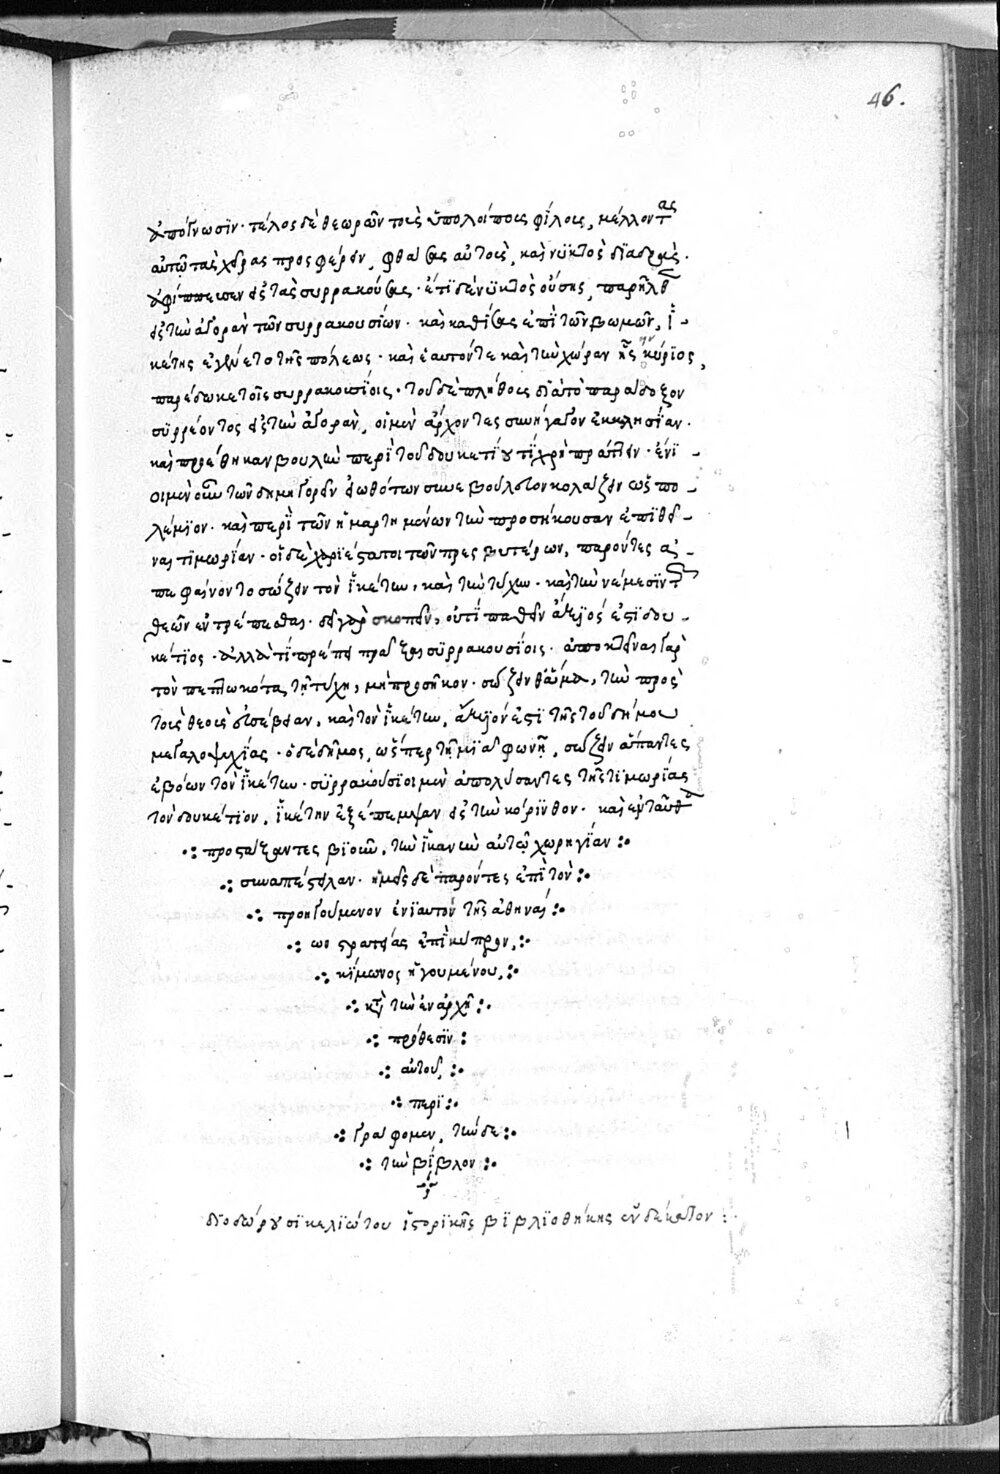 46.
ἀπόγνωσιν· τέλος δὲ θεωρῶν τοὺς ὑπολοίπους φίλους, μέλλοντας
αὐτῷ τὰς χεῖρας προσφέρειν, φθάσας αὐτοὺς, καὶ νυκτὸς διαδρὰς·
ἀφίππευσεν εἰς τὰς συρρακούσας· ἔτι δὲ νυκτὸς οὔσης, παρῆλθεν
εἰς τὴν ἀγορὰν τῶν συρρακουσίων· καὶ καθίσας ἐπὶ τῶν βωμῶν, ἱ-
κέτης ἐγένετο τῆς πόλεως· καὶ ἑαυτόν τε καὶ τὴν χώραν ἧς ἦν κύριος,
παρέδωκε τοῖς συρρακουσίοις· τοῦ δὲ πλήθους διὰ τὸ παράδοξον
συρρέοντος εἰς τὴν ἀγορὰν, οἱ μὲν ἄρχοντες συνήγαγον ἐκκλησίαν·
καὶ προέθηκαν βουλὴν περὶ τοῦ δουκετίου τί χρὴ πράττειν· ἔνι-
οι μὲν οὖν τῶν δημηγορεῖν εἰωθότων συνεβούλευον κολάζειν ὡς πο-
λέμιον· καὶ περὶ τῶν ἡμαρτημένων τὴν προσήκουσαν ἐπιθεῖ-
ναι τιμωρίαν· οἱ δὲ χαριέστατοι τῶν πρεσβυτέρων, παρόντες ἀ-
πεφαίνοντο σώζειν τὸν ἱκέτην, καὶ τὴν τύχην· καὶ τὴν νέμεσιν τῶν
θεῶν ἐντρέπεσθαι· δεῖ γὰρ σκοπεῖν, οὐ τί παθεῖν ἄξιός ἐστι δου-
κέτιος· ἀλλὰ τί πρέπει πρᾶξαι συρρακουσίοις· ἀποκτεῖναι γὰρ
τὸν πεπτωκότα τῇ τύχῃ, μὴ προσῆκον· σώζειν θἅμα, τὴν πρὸς
τοὺς θεοὺς εὐσέβειαν, καὶ τὸν ἱκέτην, ἄξιόν ἐστι τῆς τοῦ δήμου
μεγαλοψυχίας· ὁ δὲ δῆμος, ὥσπερ τῇ μιᾷ φωνῇ, σώζειν ἅπαντες
ἐβόων τὸν ἱκέτην· συρρακούσιοι μὲν ἀπολύσαντες τῆς τιμωρίας
τὸν δουκέτιον, ἱκέτην ἐξέπεμψαν εἰς τὴν κόρινθον· καὶ ἐνταῦθα
·: προστάξαντες βιοῦν, τὴν ἱκανὴν αὐτῷ χωρηγίαν :·
·: συναπέστειλαν· ἡμεῖς δὲ παρόντες ἐπὶ τὸν :·
·: προηγούμενον ἐνιαυτὸν τῆς ἀθηναί :·
·: ων στρατείας ἐπὶ κύπρον, :·
·: κίμωνος ἡγουμένου, :·
·: κατὰ τὴν ἐν ἀρχῇ :·
·: πρόθεσιν :
·: αὐτοῦ, :·
·: περι :·
·: γράφομεν, τήνδε :·
·: τὴν βίβλον :·
διοδώρου σικελιώτου ἱστορικῆς βιβλιοθήκης ἑνδέκατον :·